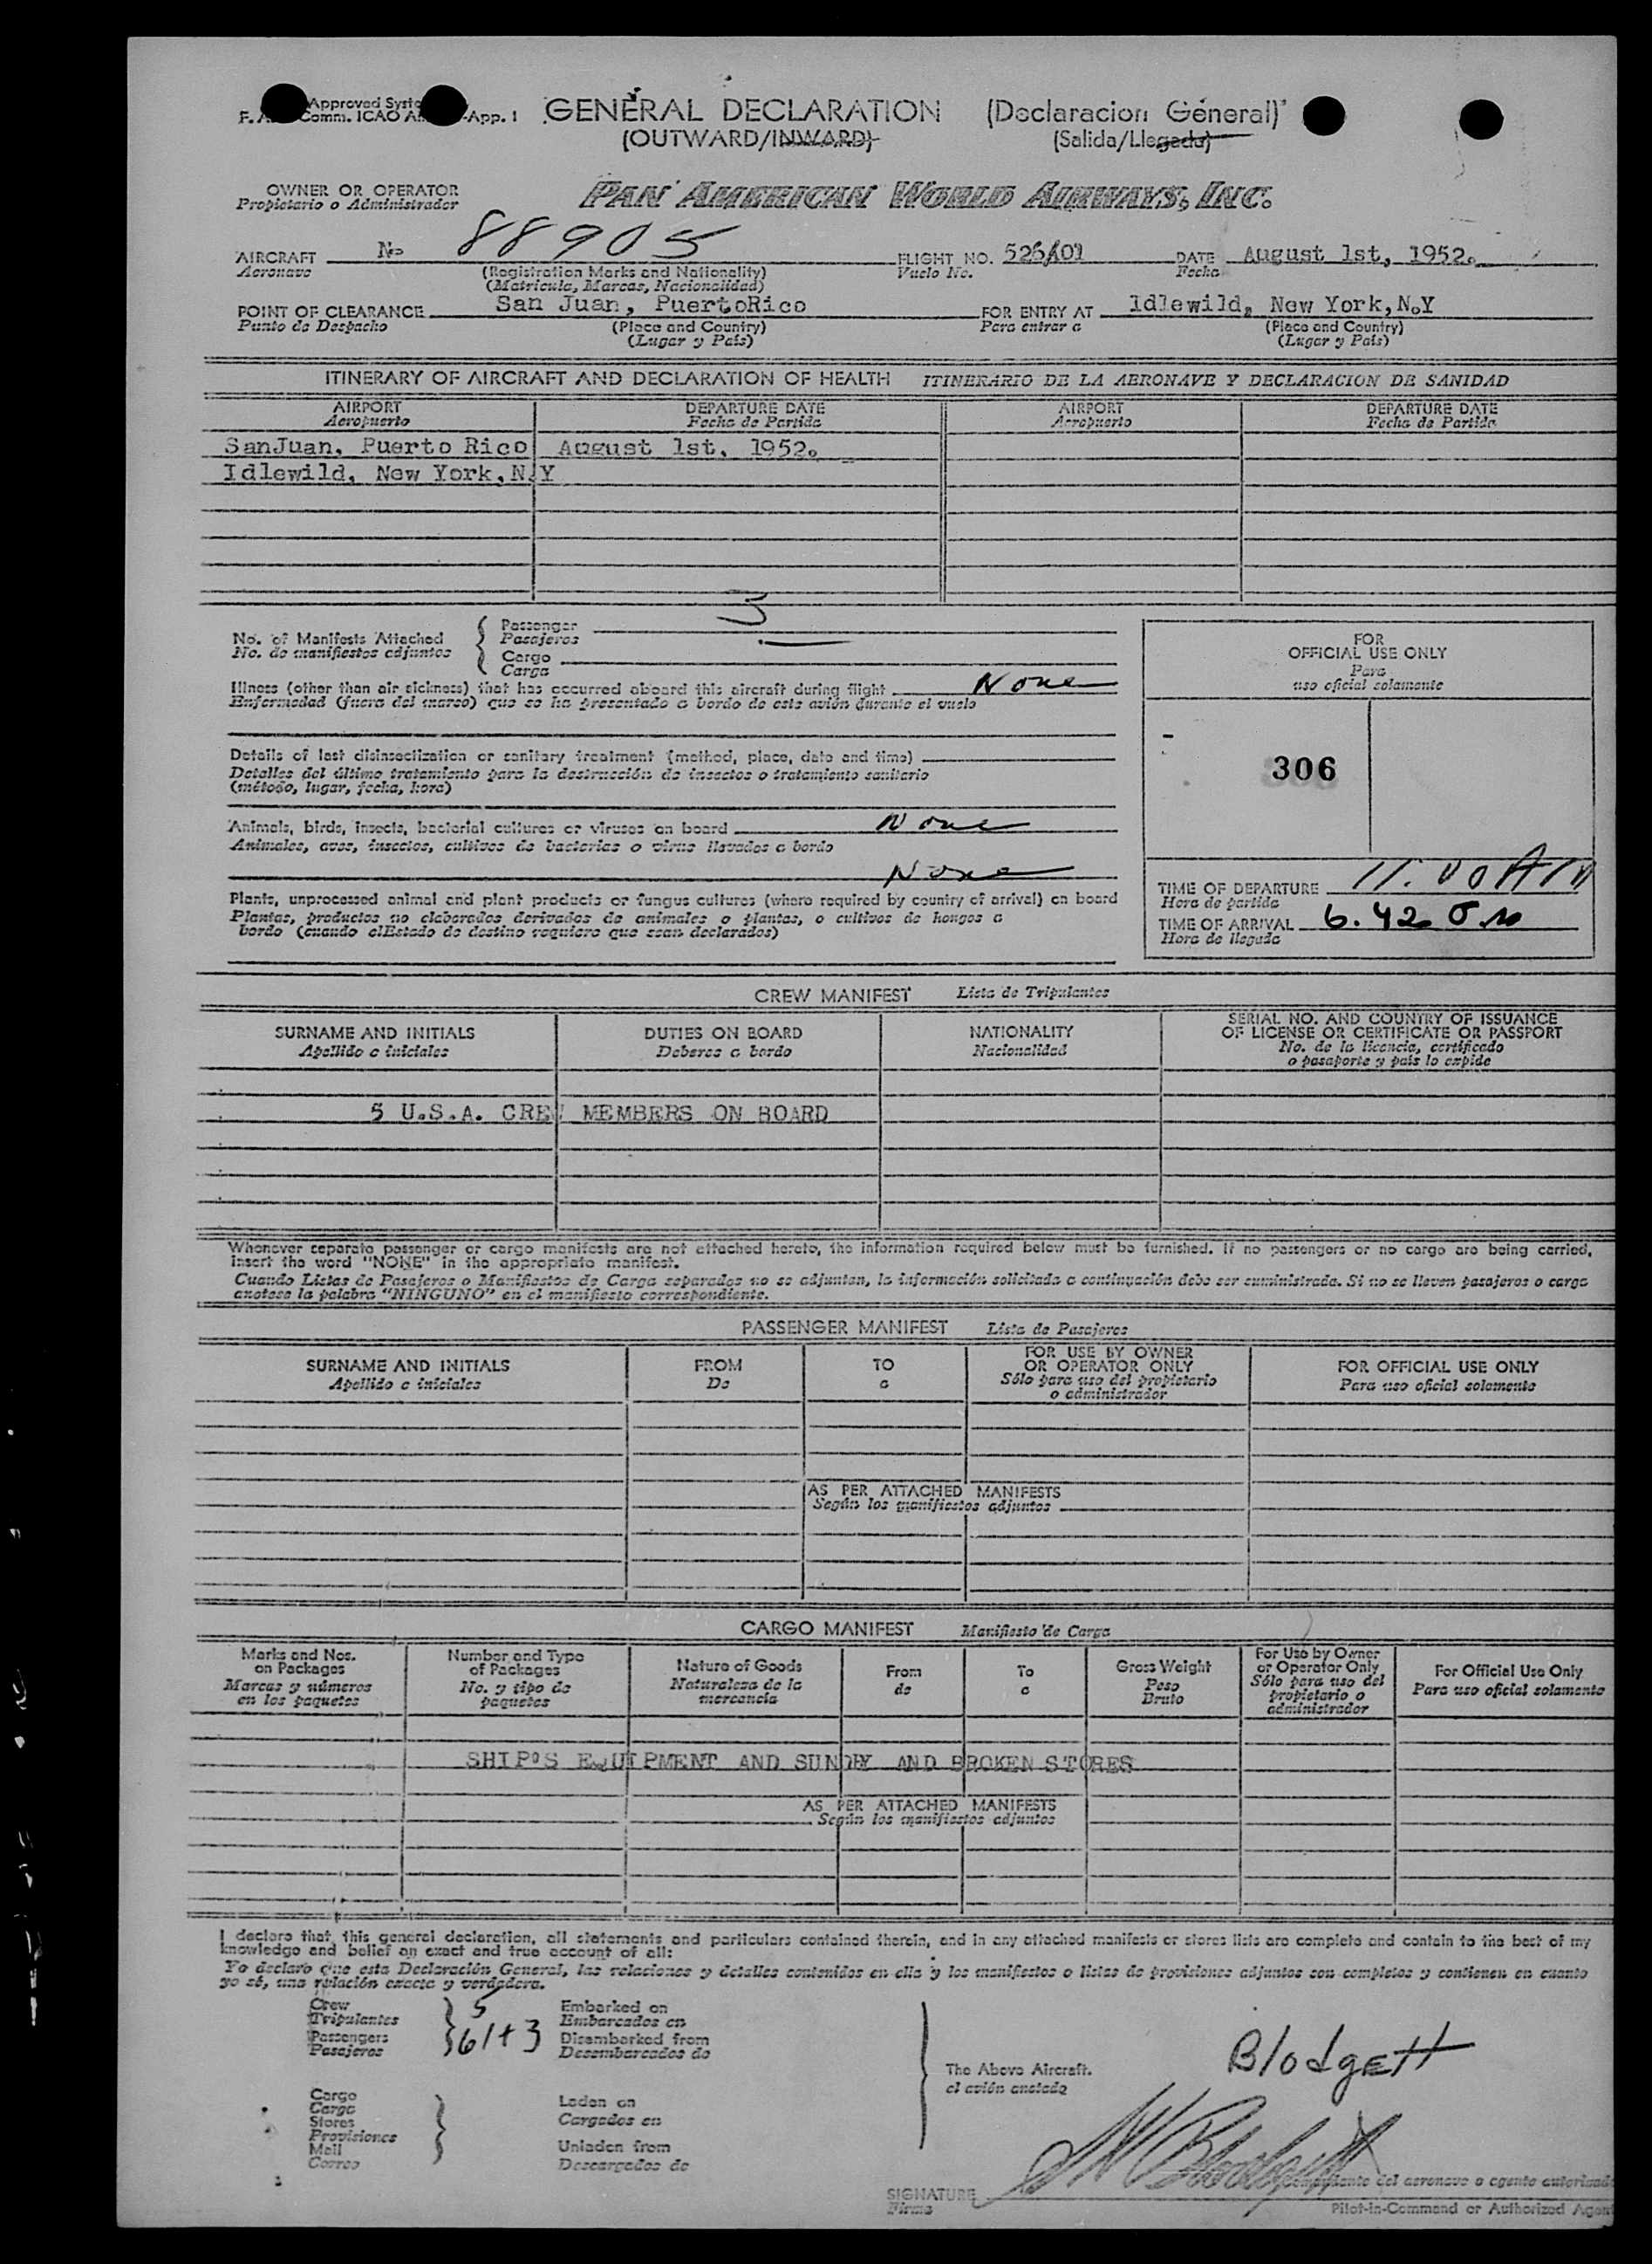 Approved Syste
F. A. Comm. ICAO A -App. 1
GENERAL DECLARATION (Declaracion General)
(OUTWARD/INWARD) (Salida/Llegada)
OWNER OR OPERATOR
Propietario o Administrador
PAN AMERICAN WORLD AIRWAYS, INC.
AIRCRAFT No 88905 FLIGHT NO. 526/01 DATE August 1st, 1952.
Aeronave (Registration Marks and Nationality) Vuelo No. Fecha
(Matricula, Marcas, Nacionalidad)
POINT OF CLEARANCE San Juan, PuertoRico FOR ENTRY AT Idlewild, New York,N.Y
Punto de Despacho (Place and Country) Para entrar a (Place and Country)
(Lugar y País) (Lugar y País)
ITINERARY OF AIRCRAFT AND DECLARATION OF HEALTH ITINERARIO DE LA AERONAVE Y DECLARACION DE SANIDAD
AIRPORT DEPARTURE DATE AIRPORT DEPARTURE DATE
Aeropuerto Fecha de Partida Aeropuerto Fecha de Partida
SanJuan, Puerto Rico August 1st, 1952.
Idlewild, New York,N.Y
No. of Manifests Attached
No. de manifiestos adjuntos
Passenger 5
Pasajeros
Cargo
Carga
Illness (other than air sickness) that has occurred aboard this aircraft during flight None
Enfermedad (fuera del mareo) que se ha presentado a bordo de este avión durante el vuelo
Details of last disinsectization or sanitary treatment (method, place, date and time)
Detalles del último tratamiento para la destrucción de insectos o tratamiento sanitario
(método, lugar, fecha, hora)
Animals, birds, insects, bacterial cultures or viruses on board None
Animales, aves, insectos, cultivos de bacterias o virus llevados a bordo
None
Plants, unprocessed animal and plant products or fungus cultures (where required by country of arrival) on board
Plantas, productos no elaborados derivados de animales o plantas, o cultivos de hongos a
bordo (cuando elEstado de destino requiere que sean declarados)
FOR
OFFICIAL USE ONLY
Para
uso oficial solamente
306
TIME OF DEPARTURE 11.00 AM
Hora de partida
TIME OF ARRIVAL 6.42
Hora de llegada
CREW MANIFEST Lista de Tripulantes
SURNAME AND INITIALS DUTIES ON BOARD NATIONALITY SERIAL NO. AND COUNTRY OF ISSUANCE
OF LICENSE OR CERTIFICATE OR PASSPORT
Apellido e iniciales Deberes a bordo Nacionalidad No. de la licencia, certificado
o pasaporte y país lo expide
5 U.S.A. CREW MEMBERS ON BOARD
Whenever separate passenger or cargo manifests are not attached hereto, the information required below must be furnished. If no passengers or no cargo are being carried,
insert the word "NONE" in the appropriate manifest.
Cuando Listas de Pasajeros o Manifiestos de Carga separados no se adjuntan, la información solicitada a continuación debe ser suministrada. Si no se llevan pasajeros o carga
anotese la palabra "NINGUNO" en el manifiesto correspondiente.
PASSENGER MANIFEST Lista de Pasajeros
SURNAME AND INITIALS FROM TO FOR USE BY OWNER
OR OPERATOR ONLY FOR OFFICIAL USE ONLY
Apellido e iniciales De a Sólo para uso del propietario
o administrador Para uso oficial solamente
AS PER ATTACHED MANIFESTS
Según los manifiestos adjuntos
CARGO MANIFEST Manifiesto de Carga
Marks and Nos.
on Packages
Marcas y números
en los paquetes
Number and Type
of Packages
No. y tipo de
paquetes
Nature of Goods
Naturaleza de la
mercancía
From
de
To
a
Gross Weight
Peso
Bruto
For Use by Owner
or Operator Only
Sólo para uso del
propietario o
administrador
For Official Use Only
Para uso oficial solamente
SHIP'S EQUIPMENT AND SUNDRY AND BROKEN STORES
AS PER ATTACHED MANIFESTS
Según los manifiestos adjuntos
I declare that this general declaration, all statements and particulars contained therein, and in any attached manifests or stores lists are complete and contain to the best of my
knowledge and belief an exact and true account of all:
Yo declaro que esta Declaración General, las relaciones y detalles contenidos en ella y los manifiestos o listas de provisiones adjuntos son completos y contienen en cuanto
yo sé, una relación exacta y verdadera.
Crew 5
Tripulantes
Passengers 61+3
Pasajeros
Embarked on
Embarcados en
Disembarked from
Desembarcados de
Cargo
Carga
Stores
Provisiones
Mail
Correo
Laden on
Cargados en
Unladen from
Descargados de
The Above Aircraft.
el avión anotado
Blodgett
SIGNATURE
Firma
del aeronave o agente autorizado
Pilot-in-Command or Authorized Agent